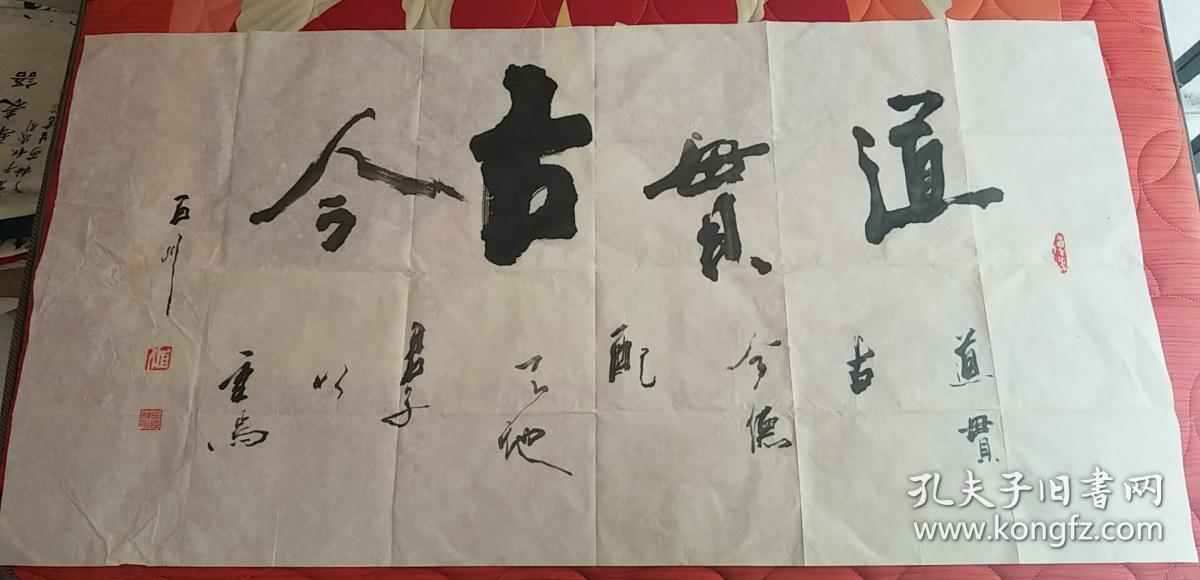 道貫古今
道貫
古
今德
配
天地
君子
以
重焉
川
孔夫子旧書网
www.kongfz.com